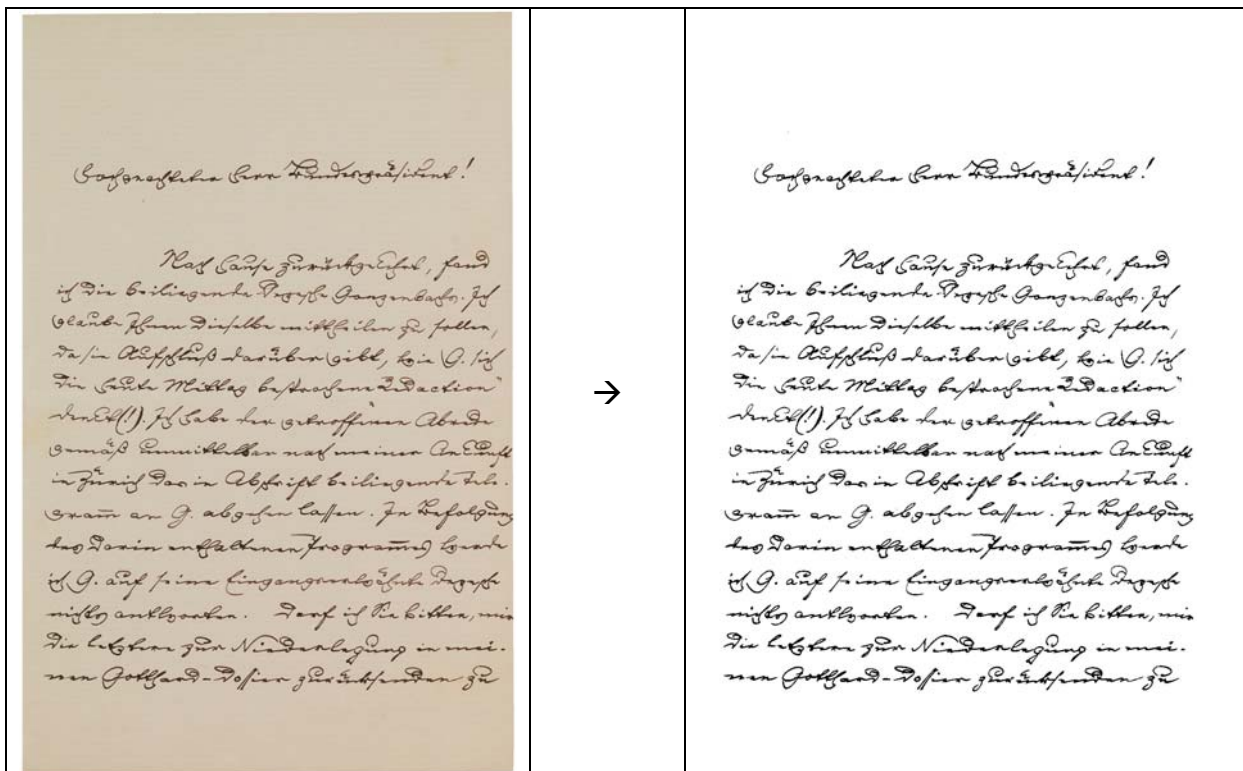 Hochgeachteter Herr Bundespräsident!
Nach Hause zurückgekehrt, fand
ich die beiliegende Depesche Gonzenbachs. Ich
glaube Ihnen dieselbe mittheilen zu sollen,
da sie Aufschluß darüber gibt, wie G. sich
die heute Mittag besprochene „Redaction"
denkt(!). Ich habe der getroffenen Abrede
gemäß unmittelbar nach meiner Ankunft
in Zürich das in Abschrift beiliegende Tele-
gram̅ an G. abgehen lassen. In Befolgung
des darin enthaltenen Program̅es werde
ich G. auf seine Eingangserwähnte Depesche
nichts antworten. Darf ich Sie bitten, mir
die letztere zur Niederlegung in mei-
nen Gotthard-Dossier zurücksenden zu
→
Hochgeachteter Herr Bundespräsident!
Nach Hause zurückgekehrt, fand
ich die beiliegende Depesche Gonzenbachs. Ich
glaube Ihnen dieselbe mittheilen zu sollen,
da sie Aufschluß darüber gibt, wie G. sich
die heute Mittag besprochene „Redaction"
denkt(!). Ich habe der getroffenen Abrede
gemäß unmittelbar nach meiner Ankunft
in Zürich das in Abschrift beiliegende Tele-
gram̅ an G. abgehen lassen. In Befolgung
des darin enthaltenen Program̅es werde
ich G. auf seine Eingangserwähnte Depesche
nichts antworten. Darf ich Sie bitten, mir
die letztere zur Niederlegung in mei-
nen Gotthard-Dossier zurücksenden zu